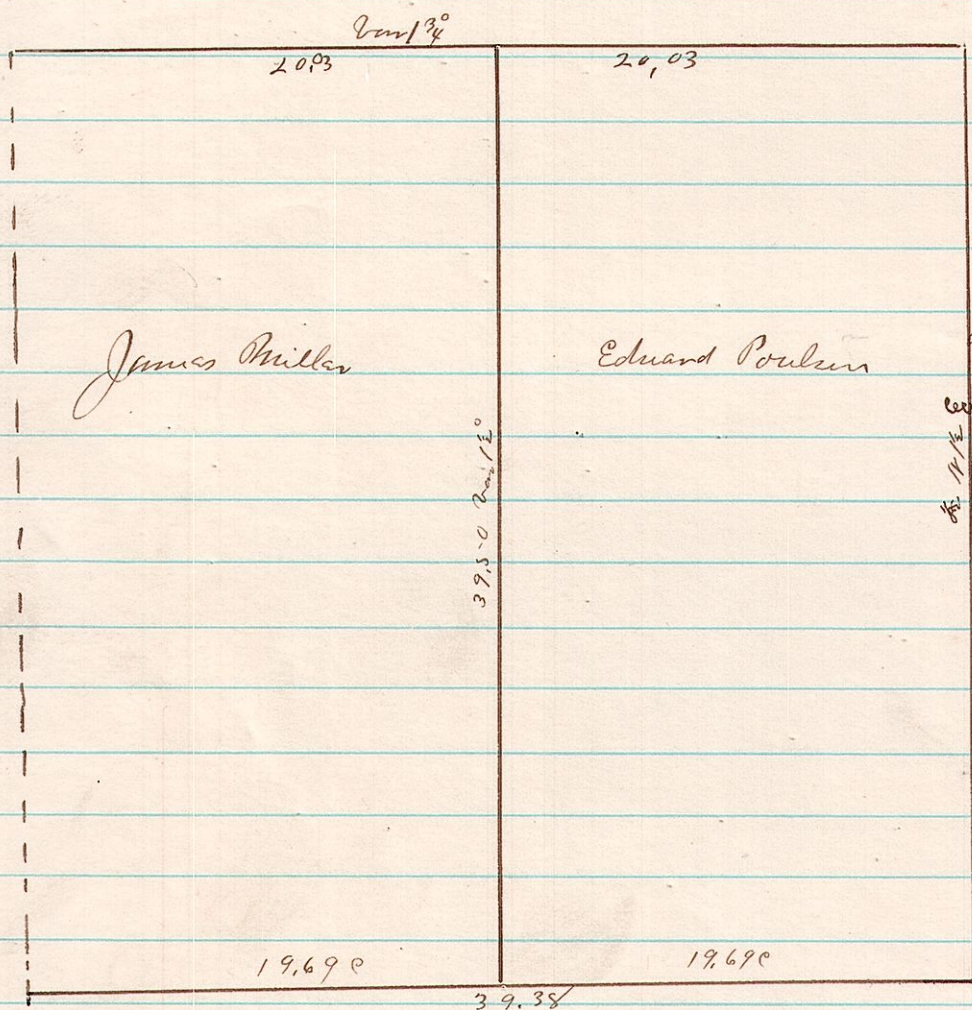 Var 1 3/4°
20,03
20,03
James Millar
Eduard Poulsen
39,50 Var 1 1/2°
19,69 c
19,69 c
39.38